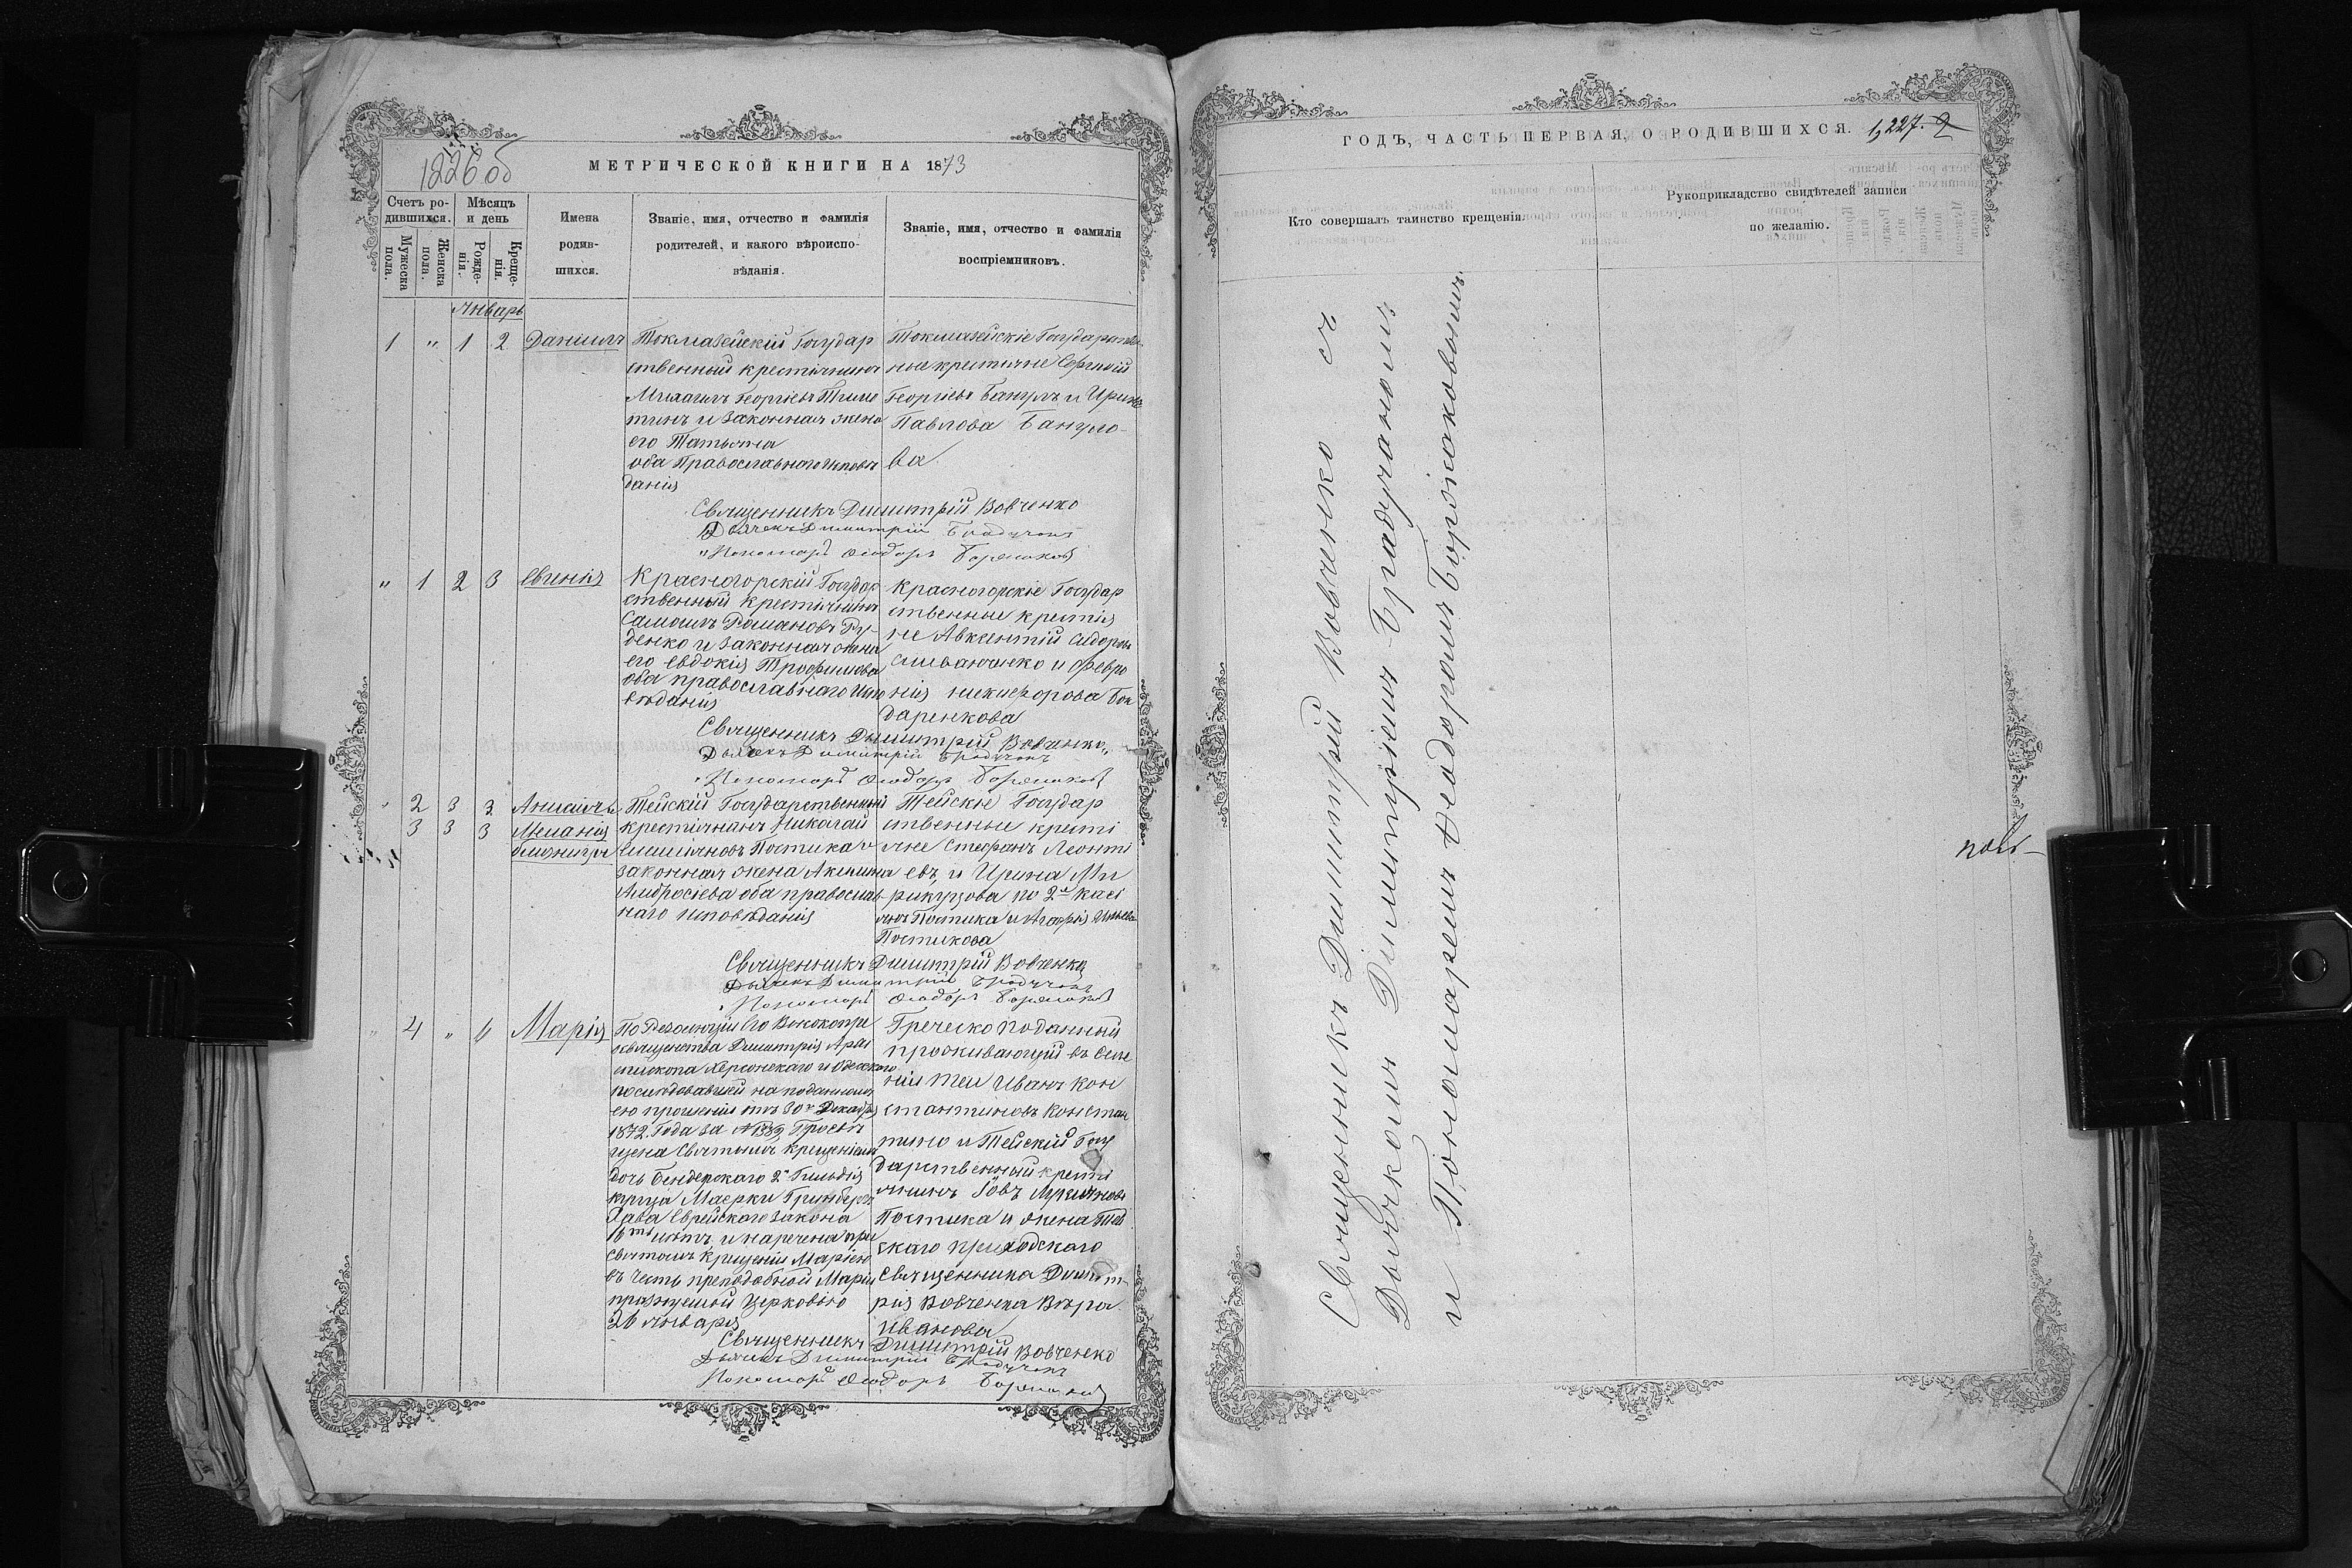 1226 об
МЕТРИЧЕСКОЙ КНИГИ НА 1873
Счетъ ро-
дившихся.
Мѣсяцъ
и день
Мужеска
пола.
Женска
пола.
Рожде-
нія.
Креще-
нія.
Имена
родив-
шихся.
Званіе, имя, отчество и фамилія
родителей, и какого вѣроиспо-
вѣданія.
Званіе, имя, отчество и фамилія
воспріемниковъ.
Январь
1 " 1 2 Даніилъ
Токмазейскій Государ
ственный крестьянинъ
Михаилъ Георгіевъ
и законная жена
его Татьяна
оба Православнаго исповѣ
данія
Токмазейскіе Государстве-
ные крестьяне Сергѣй
Георгіевъ Бангулъ и Ирина
Павлова Бангуло-
ва
Священникъ Димитрій Вовченко
Дьячекъ Димитрій
Пономарь Ѳеодоръ
" 1 2 3 Евгенія
Красногорскій Государ
ственный крестьянинъ
Самоилъ Романовъ Ру-
денко и законная жена
его Евдокія Трофимова
оба православнаго испо
вѣданія
Красногорскіе Государ
ственные крестья
не Авксентій Сидоровъ
и Февро
нія Никифорова Бон
даренкова
Священникъ Димитрій Вовченко
Дьячекъ Димитрій
Пономарь Ѳеодоръ
2 3 3
3 3 3 Меланія
близнецы
Тейскій Государственный
крестьянинъ Николай
Емиліяновъ Постика и
законная жена Акилина
Амвросіева оба православ
наго исповѣданія
Тейскіе Государ
ственные кресть
яне Стефанъ Леонті
евъ и Ирина Ми
рикуцова по 2й Касі
янъ Постика и Агафія
Постикова
Священникъ Димитрій Вовченко
Дьячекъ Димитрій
Пономарь Ѳеодоръ
4 " 6 Марія
По Резолюціи Его Высокопре
освященства Димитрія Архі
епископа Херсонскаго и Одесскаго
послѣдовавшей на поданномъ
ею прошеніи отъ 30го Декабря
1872 Года за № 1382, Просвѣ
щена Святымъ Крещеніемъ
дочь Бендерскаго 2й Гильдіи
купца Маерки Гринберга
Хава Еврейскаго закона
16ти лѣтъ и наречена при
святомъ крещеніи Маріею
въ честь преподобной Маріи
празнуемой Церковью
26 января
Греческо поданный
проживающій въ селе
ніи Теи Иванъ Кон
стантиновъ Констан
тино и Тейскій Госу
дарственный кресть
янинъ Іовъ
Постика и жена Тей
скаго приходскаго
священника Димит-
рія Вовченка Вѣра
Иванова
Священникъ Димитрій Вовченко
Дьячекъ Димитрій
Пономарь Ѳеодоръ
ГОДЪ, ЧАСТЬ ПЕРВАЯ, О РОДИВШИХСЯ. 1,227.
Кто совершалъ таинство крещенія.
Рукоприкладство свидѣтелей записи
по желанію.
Священникъ Димитрій Вовченко съ
Дьячкомъ Димитріемъ Брадучаномъ
и Пономаремъ Ѳеодоромъ Боржаковымъ